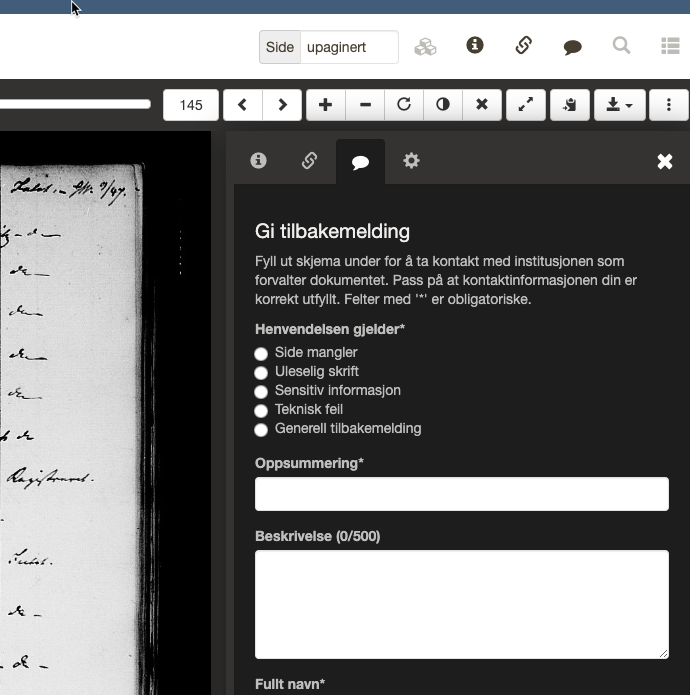 Side upaginert
145
Gi tilbakemelding
Fyll ut skjema under for å ta kontakt med institusjonen som
forvalter dokumentet. Pass på at kontaktinformasjonen din er
korrekt utfyllt. Felter med '*' er obligatoriske.
Henvendelsen gjelder*
Side mangler
Uleselig skrift
Sensitiv informasjon
Teknisk feil
Generell tilbakemelding
Oppsummering*
Beskrivelse (0/500)
Fullt navn*
de
de
de
de
de
Registreret.
de
de